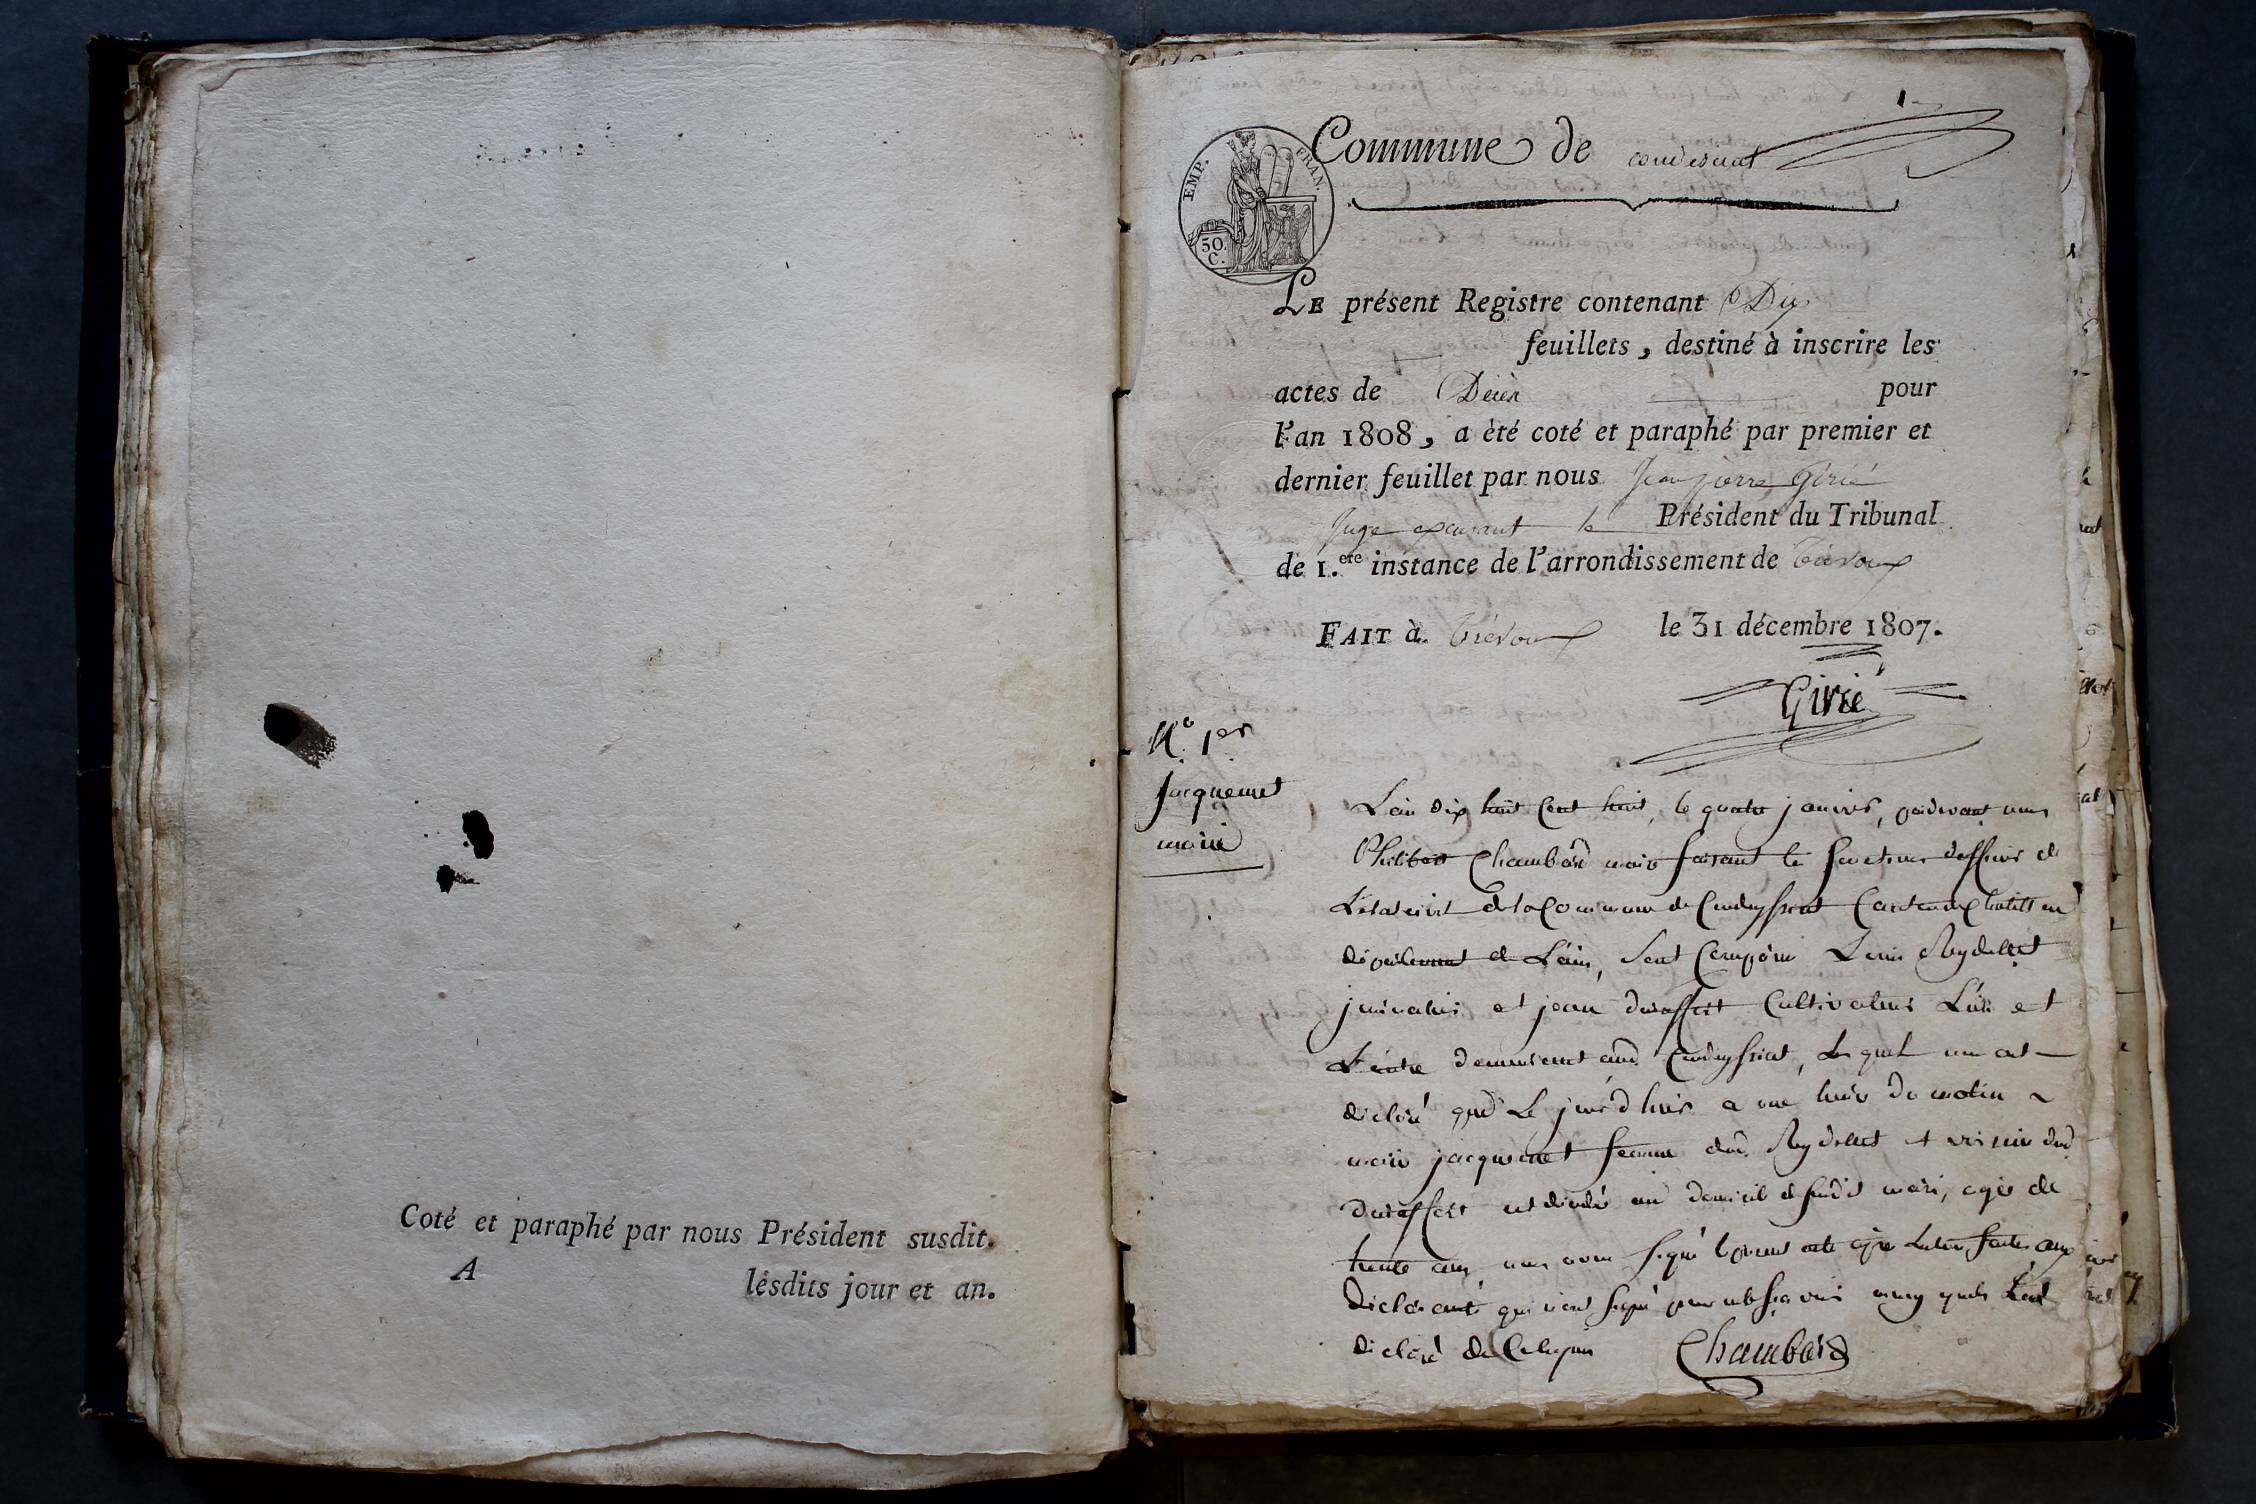 Coté et paraphé par nous Président susdit.
A lésdits jour et an.
1er
Commune de condesiat
EMP. FRAN.
50. C.
LE présent Registre contenant Dix
feuillets, destiné à inscrire les
actes de Décès pour
l'an 1808, a èté coté et paraphé par premier et
dernier feuillet par nous Jean pierre Girié
Juge exerçant le Président du Tribunal
de 1.ere instance de l'arrondissement de Trévoux
FAIT à Trévoux le 31 décembre 1807.
Girié
N.o 1er
jacquemet
marie
L'an dix huit Cent huit, le quatre janvier, pardevant nous
Philibert Chambard maire faisant les fonctions d'officier de
L'etat civil de la Commune de Condeyssiat Canton de Chatillon
département de L'ain, sont Comparu Reydellet
journalier et jean duraffort Cultivateur L'un et
L'autre demeurant aud. Condeyssiat, Lesquels nous ont
déclaré que Le jourd'huit a une heure du matin
marie jacquemet femme dud. Reydellet et voisine dud.
duraffort est décédé au domicile de sondit mari, agée de
trente ans, nous avons signé le présent acte après Lecture faite aux
déclarants qui n'ont signé pour ne le savoir
déclaré de Ce Chambard